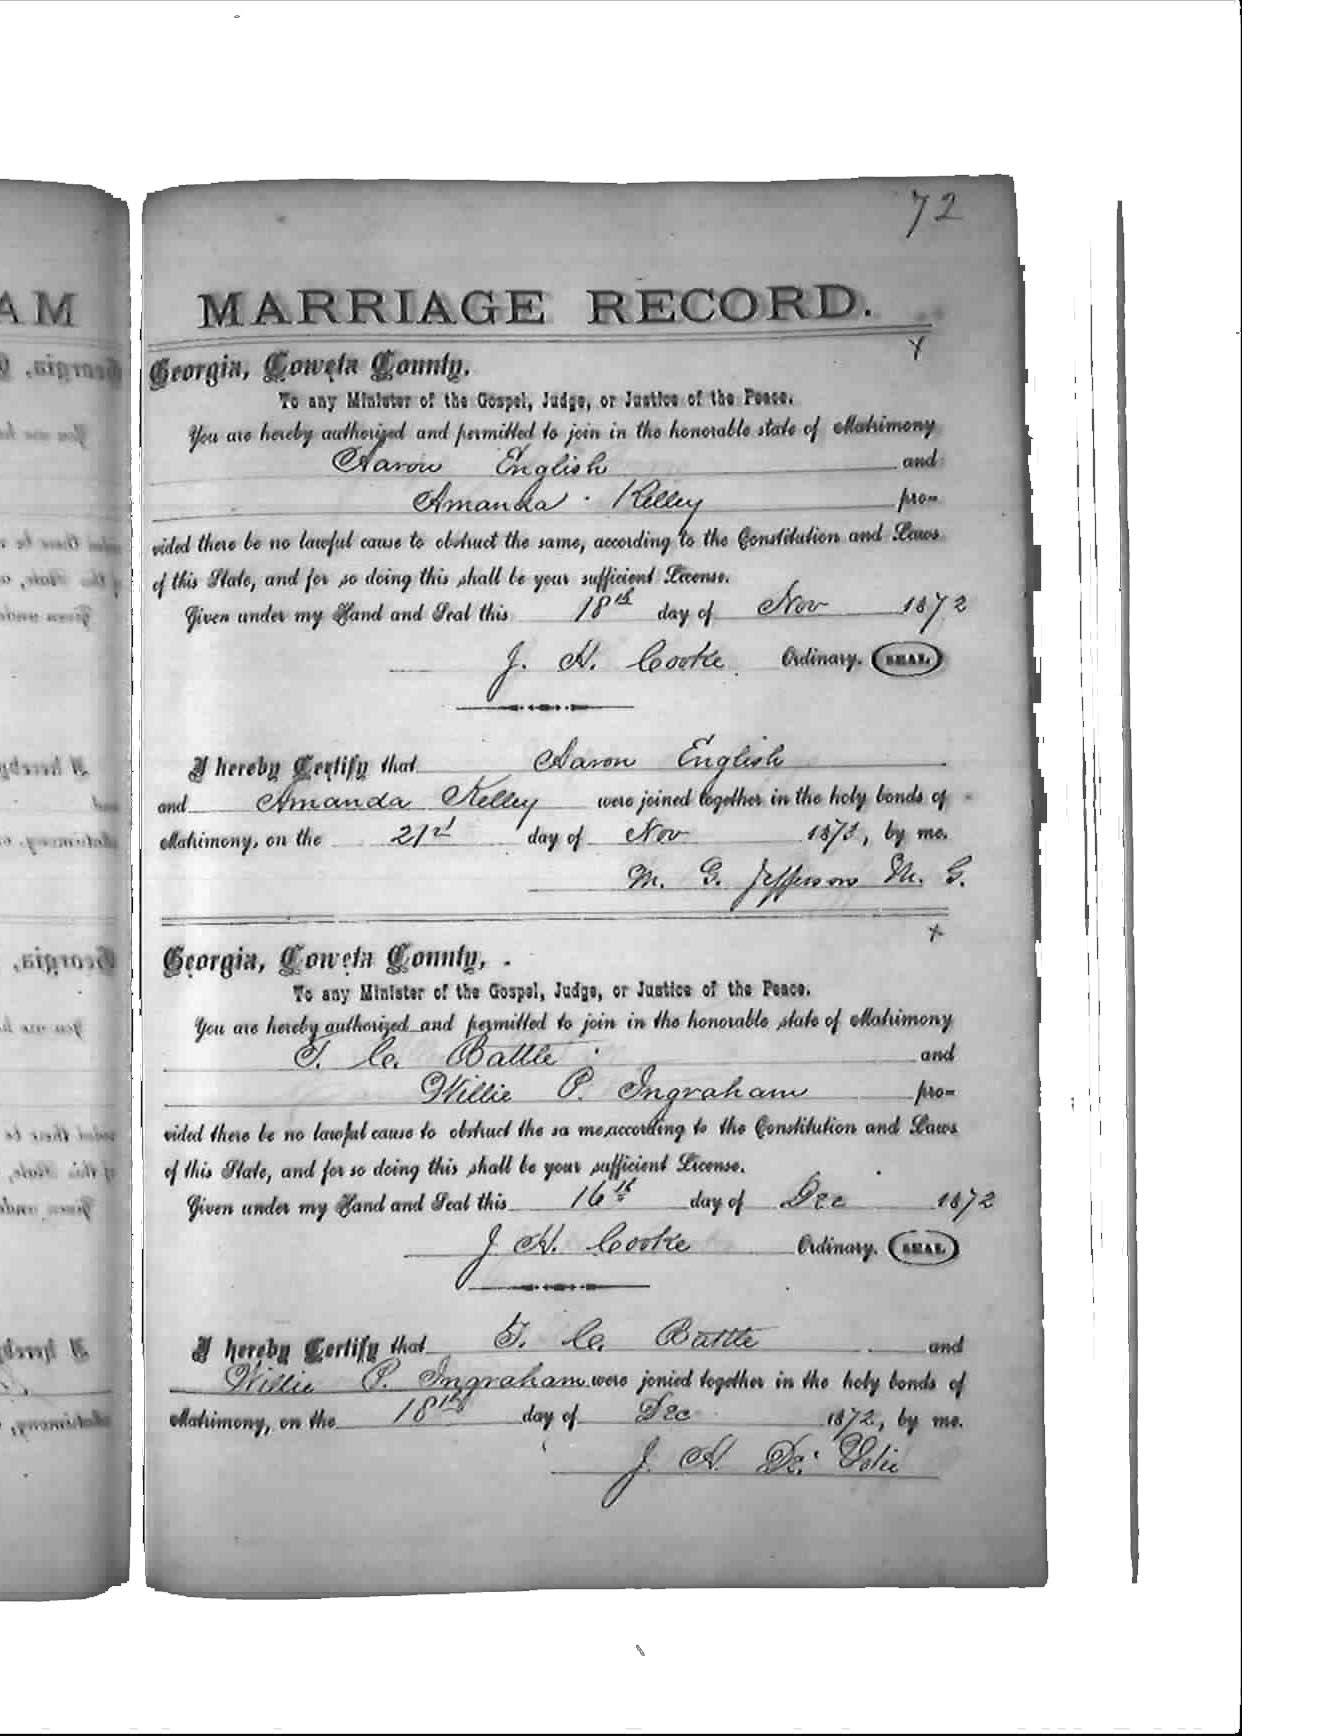 72
AM
MARRIAGE RECORD.
Georgia, Coweta County.
To any Minister of the Gospel, Judge, or Justice of the Peace.
You are hereby authorized and permitted to join in the honorable state of Matrimony
Aaron English and
Amanda Kelley pro-
vided there be no lawful cause to obstruct the same, according to the Constitution and Laws
of this State, and for so doing this shall be your sufficient License.
Given under my Hand and Seal this 18th day of Nov 1872
J. H. Cooke Ordinary. SEAL.
I hereby Certify that Aaron English
and Amanda Kelley were joined together in the holy bonds of
Matrimony, on the 21st day of Nov 1873, by me.
M. G. Jefferson M. G.
Georgia, Coweta County,
To any Minister of the Gospel, Judge, or Justice of the Peace.
You are hereby authorized and permitted to join in the honorable state of Matrimony
T. C. Battle and
Willie P. Ingraham pro-
vided there be no lawful cause to obstruct the sa me, according to the Constitution and Laws
of this State, and for so doing this shall be your sufficient License.
Given under my Hand and Seal this 16th day of Dec 1872
J H. Cooke Ordinary. SEAL.
I hereby Certify that T. C. Battle and
Willie P. Ingraham were jonied together in the holy bonds of
Matrimony, on the 18th day of Dec 1872, by me.
J. H. De Votie